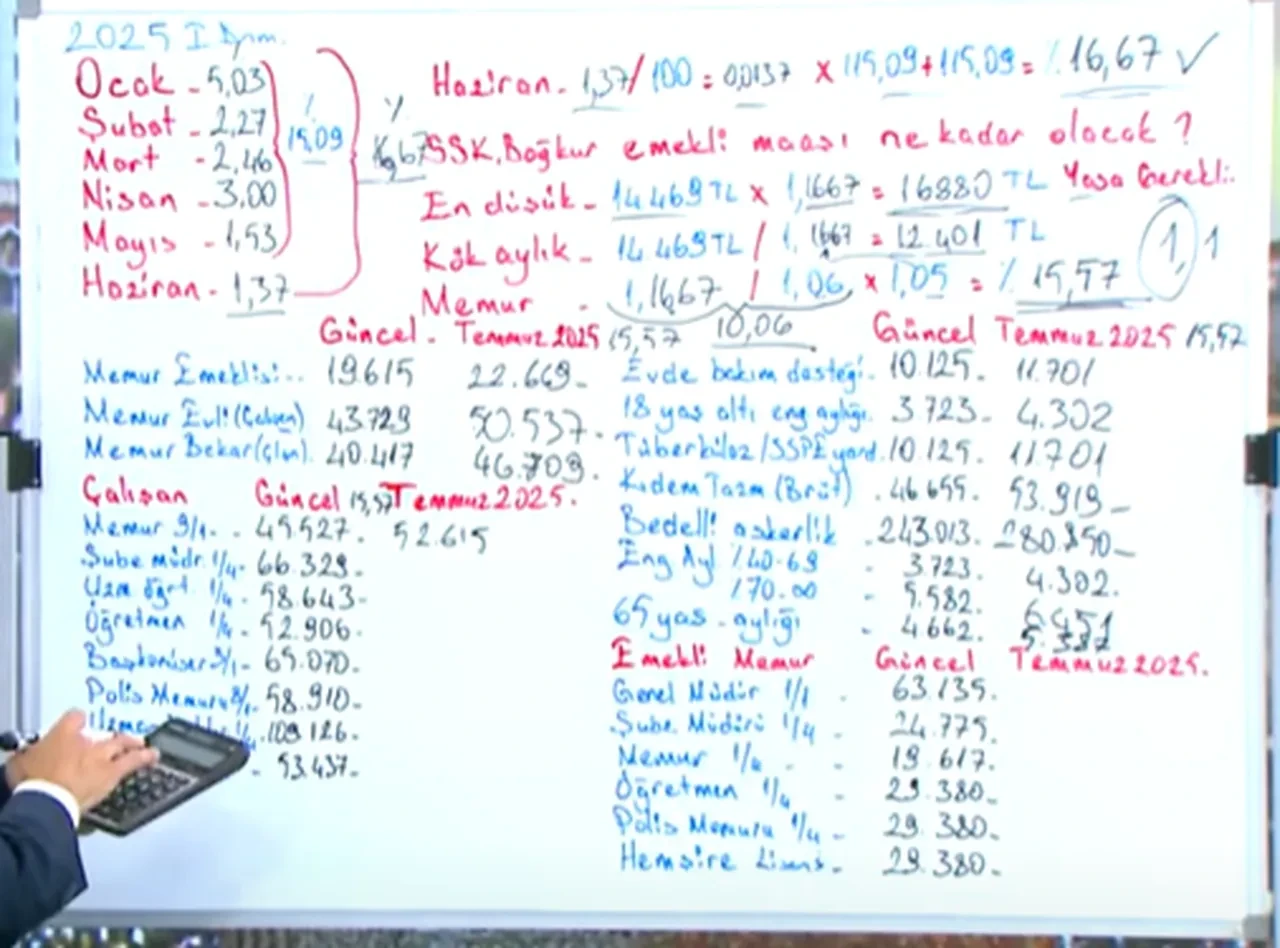 2025 I Dnm.
Ocak - 5,03
Şubat - 2,27
Mart - 2,46
Nisan - 3,00
Mayıs - 1,53
Haziran - 1,37
% 15,09
% 16,67
Haziran - 1,37/100 = 0,0137 x 115,09 + 115,09 = % 16,67 ✓
SSK, Bağkur emekli maaşı ne kadar olacak?
En düşük - 14.469 TL x 1,1667 = 16880 TL Yasa Gerekli.
Kök aylık - 14.469 TL / 1,1667 = 12.401 TL
1,1
Memur - 1,1667 / 1,06 x 1,05 = % 15,57
10,06
Güncel - Temmuz 2025 15,57
Memur Emeklisi... 19.615 22.669-
Memur Evli (Çalışan) 43.729 50.537-
Memur Bekar (Çlşn). 40.417 46.709.
Çalışan Güncel 15,57 Temmuz 2025.
Memur 9/1 - 45.527. 52.615
Şube müdr. 1/4 - 66.329-
Uzm öğrt. 1/4 - 58.643-
Öğretmen 1/4 - 52.906.
Başkomiser 3/1 - 65.070-
Polis Memuru 8/1 - 58.910-
109.126-
- 53.437-
Güncel Temmuz 2025 15,57
Evde bakım desteği - 10.125- 11.701
18 yaş altı eng aylığı - 3.723- 4.302
Tüberküloz/SSPE yard. 10.125- 11.701
Kıdem Tazm (Brüt) - 46.655. 53.919-
Bedelli askerlik - 243.013. 280.850-
Eng Ayl %40-69 - 3.723. 4.302.
%70.00 - 5.582. 6.451
65 yaş - aylığı - 4.662. 5.387
Emekli Memur Güncel Temmuz 2025.
Genel Müdür 1/1 - 63.135-
Şube Müdürü 1/4 - 24.775.
Memur 1/4 - - 19.617.
Öğretmen 1/4 - 29.380-
Polis Memuru 1/4 - 29.380-
Hemşire Lisans - 29.380-